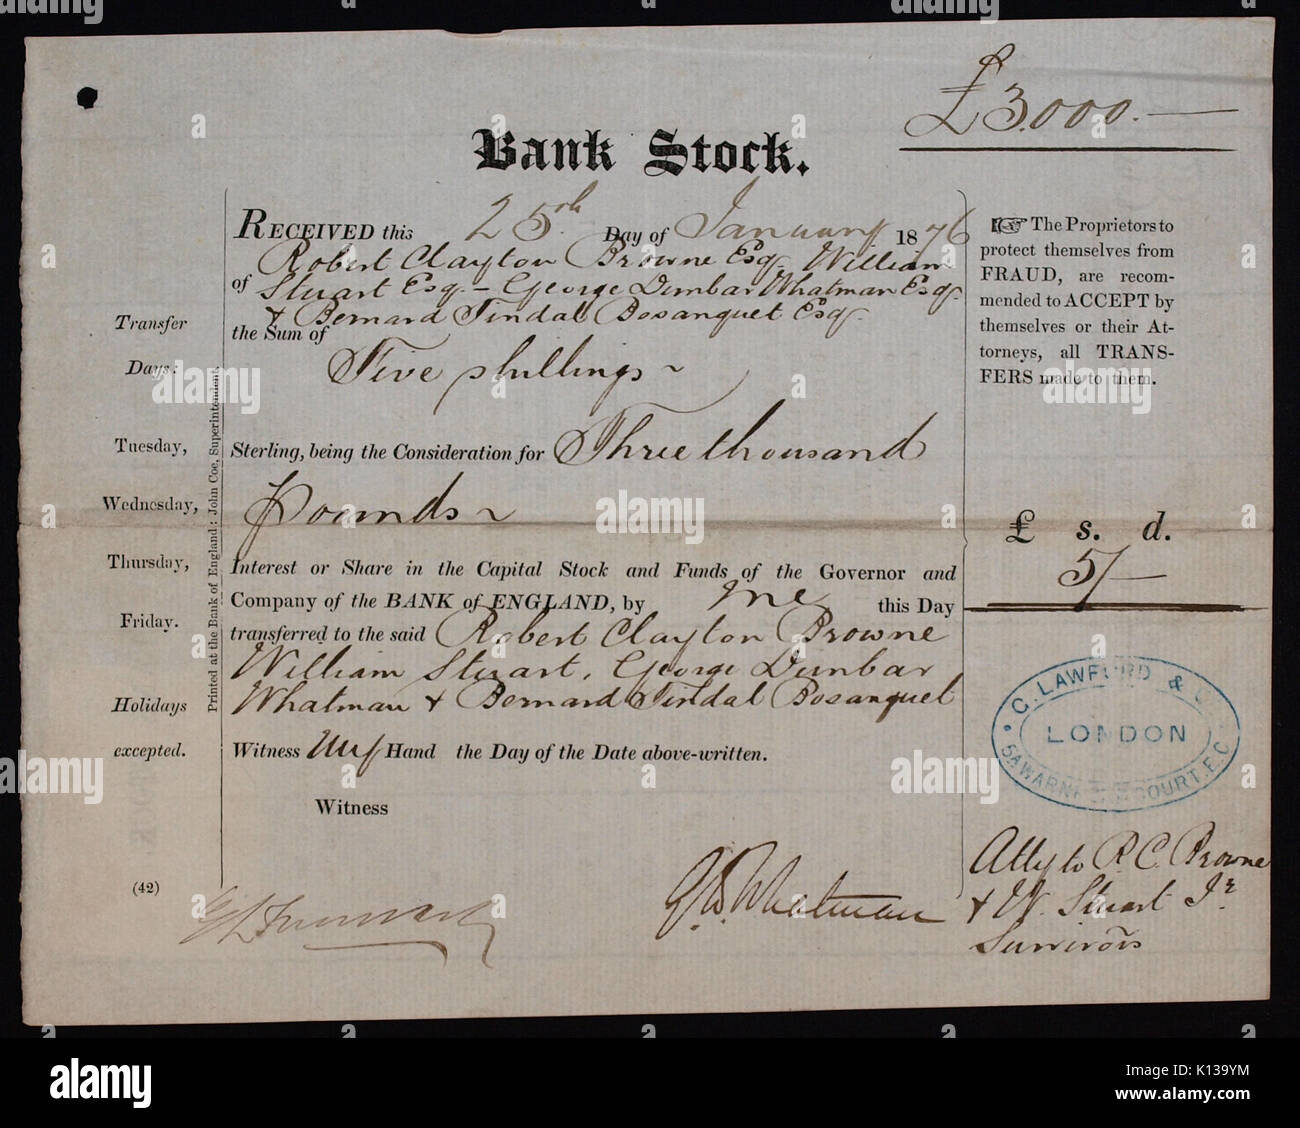 £3.000.—
Bank Stock.
RECEIVED this 25th Day of January 1876
of Robert Clayton Browne Esq. William
Stuart Esq. – George Dunbar Whatman Esq.
& Bernard Tindal Bosanquet Esq.
the Sum of
Five shillings ~
Sterling, being the Consideration for Three thousand
Pounds ~
Interest or Share in the Capital Stock and Funds of the Governor and
Company of the BANK of ENGLAND, by me this Day
transferred to the said Robert Clayton Browne
William Stuart, George Dunbar
Whatman & Bernard Tindal Bosanquet
Witness my Hand the Day of the Date above-written.
Witness
G. D. Whatman
Transfer
Days:
Tuesday,
Wednesday,
Thursday,
Friday.
Holidays
excepted.
(42)
Printed at the Bank of England: John Coe, Superintendent.
☞ The Proprietors to
protect themselves from
FRAUD, are recom-
mended to ACCEPT by
themselves or their At-
torneys, all TRANS-
FERS made to them.
£ s. d.
5/—
C. LAWFORD &
LONDON
COURT. E.C.
Atty to R. C. Browne
& W. Stuart Jr.
Survivors
alamy stock photo
alamy
Image ID: K139YM
www.alamy.com